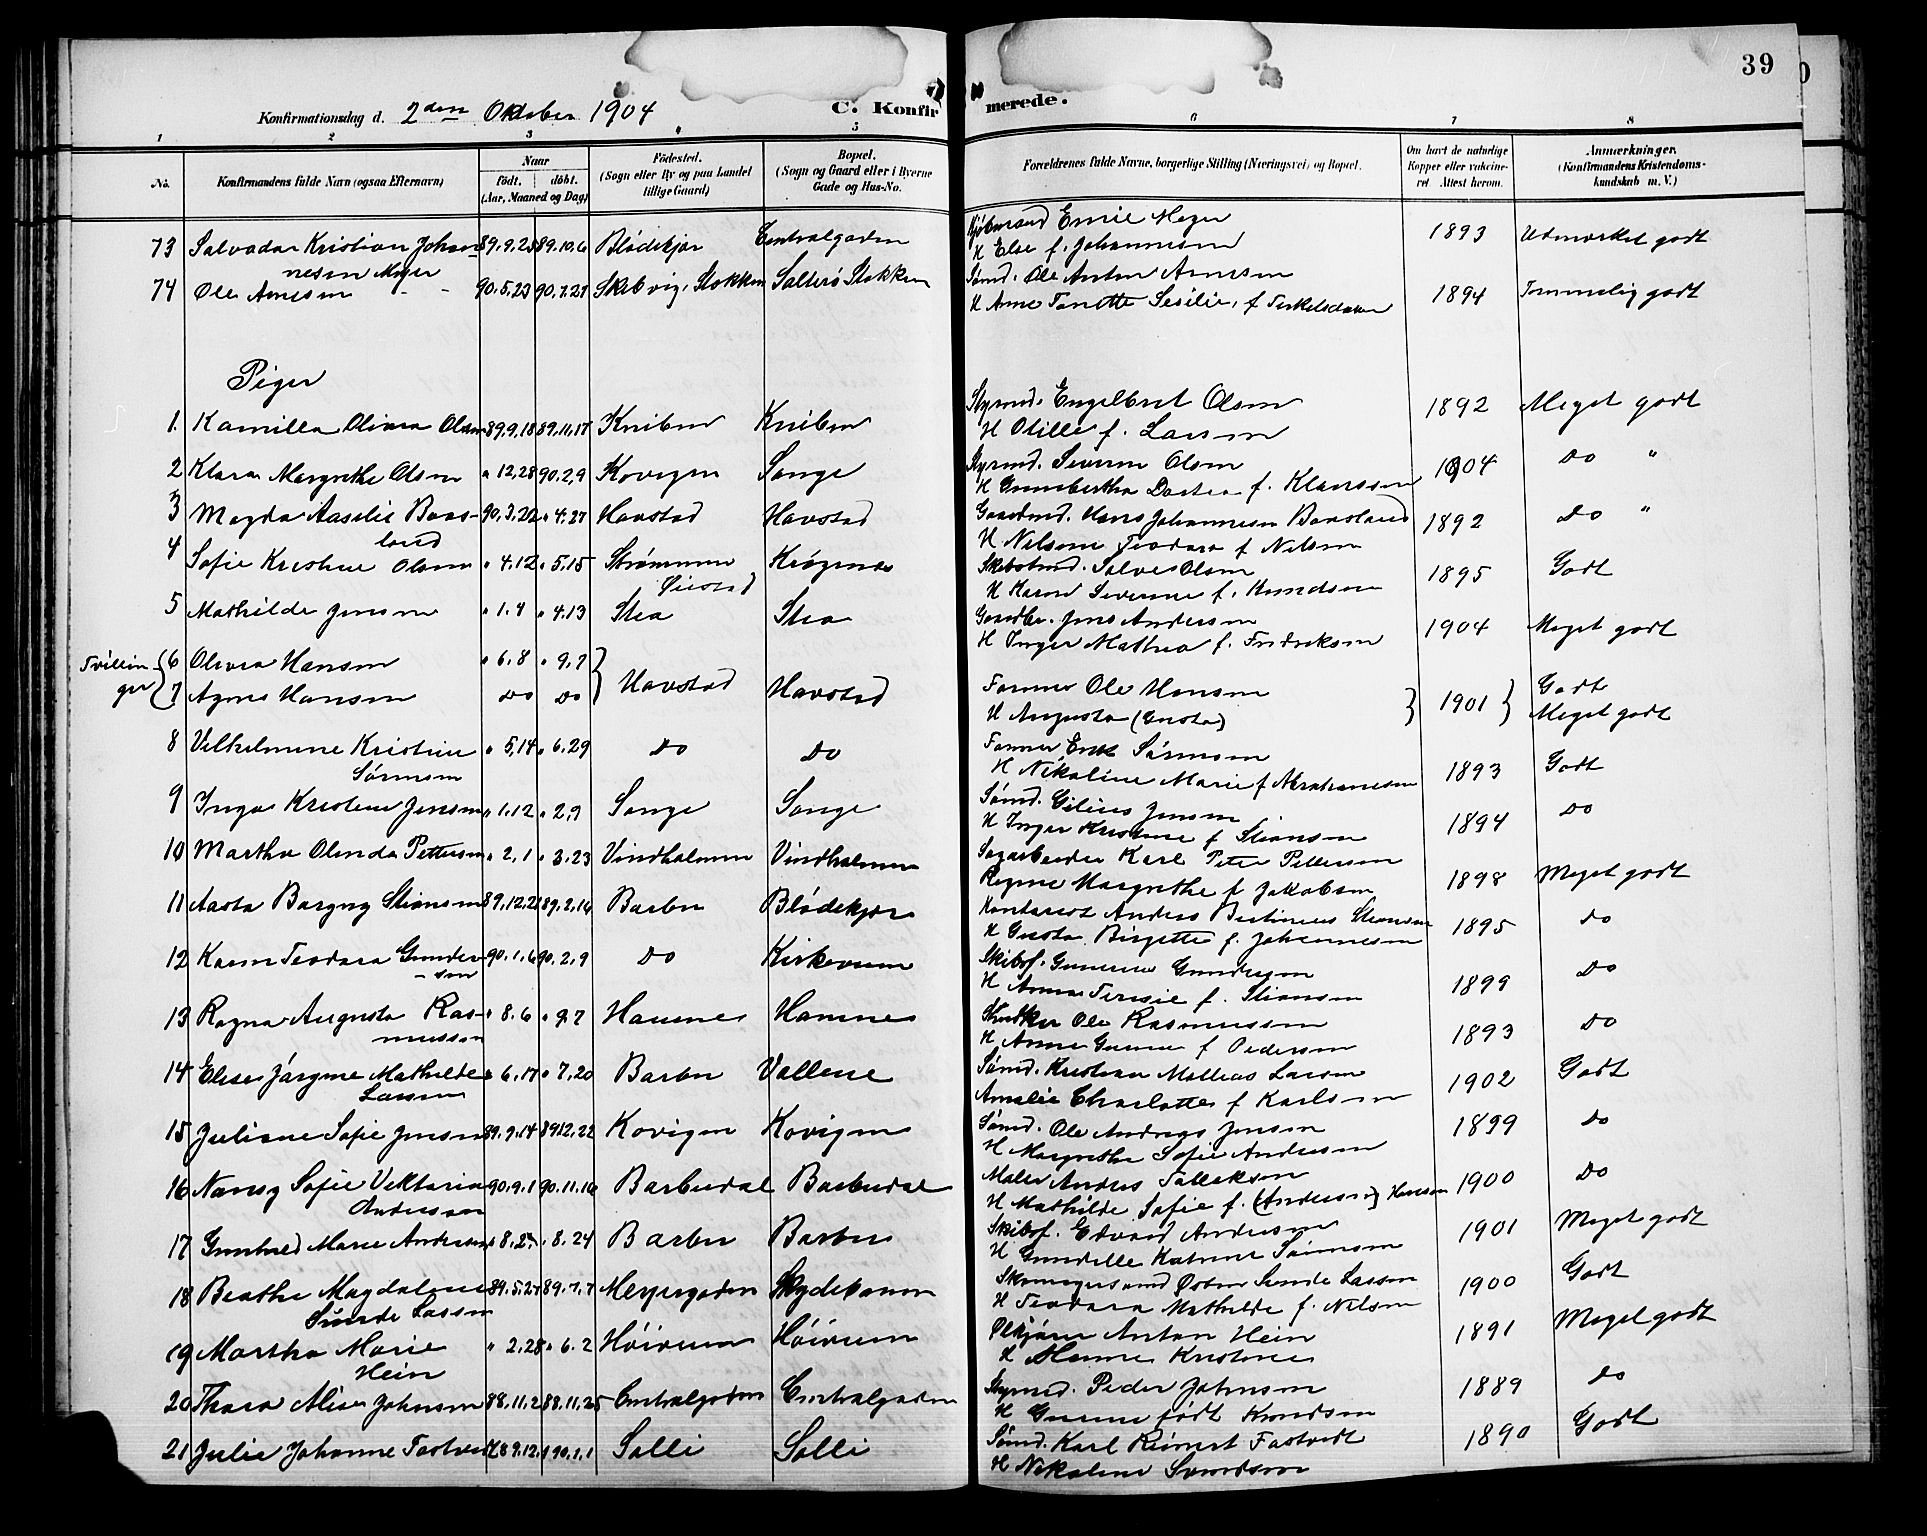 39
Konfirmationsdag d. 2den Oktober 1904 C. Konfirmerede.
1 2 3 4 5 6 7 8
No. Konfirmandens fulde Navn (ogsaa Efternavn) Naar födt. döbt. (Aar, Maaned og Dag) Födested. (Sogn eller By og paa Landet tillige Gaard) Bopæl. (Sogn og Gaard eller i Byerne Gade og Hus-No. Forældrenes fulde Navne, borgerlige Stilling (Næringsvei) og Bopæl. Om havt de naturlige Kopper eller vaccineret Attest herom. Anmærkninger. (Konfirmandens Kristendomskundskab m. V.)
73 Salvador Kristian Johan- 89.9.25 89.10.6 Blødekjær Centralgaden Emil Meyer 1893 Udmærket godt
nesen Meyer H Else f. Johannesen
74 Ole Arnesen 90.5.23 90.7.27 Skibvig, Stokken Salterø Stokken Sømd. Ole Anton Arnesen 1894 Temmelig godt
H Anne Tonette Sesilie, f Terkelsdatter
Piger
1. Kamilla Olivia Olsen 89.9.18 89.11.17 Kniben Kniben Styrmd. Engelbret Olsen 1892 Meget godt
H Otilie f. Larsen
2 Klara Margrethe Olsen " 12,28 90.2,9 Kovigen Songe Styrmd. Severin Olsen 1904 Do "
H Gunnbertha Dortea f. Klausen
3 Magda Aaselie Baas- 90.3.22 " 4.27 Havstad Havstad Gaardmd. Hans Johannesen Baasland 1892 Do "
land H Nilsine Teodora f Nilsen
4 Sofie Kristine Olsen " 4.12 " 5,15 Strømmen Krøgenes Skibstmd. Salve Olsen 1895 Godt
H Karen Severine f. Knudsen
5 Mathilde Jensen " 1.4 " 4.13 Stea Stea Gaardbr. Jens Andersen 1904 Meget godt
H Inger Mathea f. Fredriksen
Tvillin-
ger
6 Olivia Hansen " 6.8 " 9.7 Havstad Havstad Farmer Ole Hansen 1901 Godt
7 Agnes Hansen Do Do H Augusta (Gusta) Meget godt
8 Vilhelmine Kristine " 5,14 " 6.29 Do Do Farmer Erik Sørensen 1893 Godt
Sørensen H Nikoline Marie f Abrahamsen
9 Inga Kristine Jensen " 1.12 " 2,9 Songe Songe Sømd. Gilius Jensen 1894 Do
H Inger Kristine f Stiansen
10 Martha Olinda Pettersen " 2,1 " 3.23 Vindholmen Vindholmen Sagarbeider Karl Peter Pettersen 1898 Meget godt
Regine Margrethe f Jakobsen
11 Aasta Borgny Stiansen 89,12.2 89.2,16 Barbu Blødekjær Kontorist Anders Bertinius Stiansen 1895 Do
H Gusta Birgette f. Johannesen
12 Karen Teodora Gunder- 90.1.6 90.2,9 Do Kirkeveien Skibsf. Gunerius Gundersen 1899 Do
-sen H Anna Teresie f. Stiansen
13 Ragna Augusta Ras- " 8.6 " 9.7 Havnes Havnes Ole Rasmussen 1893 Do
mussen H Anne Gurine f Pedersen
14 Elise Jørgine Mathilde " 6.17 " 7,20 Barbu Vollene Sømd. Kristian Mathias Larsen 1902 Godt
Larsen Amalie Charlotte f Karlsen
15 Juliane Sofie Jensen 89.9.14 8912,22 Kovigen Kovigen Sømd. Ole Andreas Jensen 1899 Do
H Margrethe Sofie Andersen
16 Nansy Sofie Viktoria 90.9.1 90.11.16 Barbudal Barbudal Maler Anders Tallaksen 1900 Do
Andersen H Mathilde Sofie f. (Andersen) Hansen
17 Gunhild Marie Andersen " 8.24 Barbu Barbu Skibsf. Edvard Andersen 1901 Meget godt
H Gundelle Katrine Sørensen
18 Beathe Magdalene 89.5.27 89.7.7 Meyergaden Skydebanen Skomagersvend Østen Sunde Lassen 1900 Godt
Sunde Lassen H Teodora Mathilde f. Nilsen
19 Martha Marie " 2.28 " 6.2 Høiveien Høiveien Anton Hein 1891 Meget godt
Hein H Hanne Kristine
20 Thora Alise Johnsen 88.11.2 88.11.25 Centralgaden Centralgaden Styrmd. Peder Johnsen 1889 Do
H Gurine født Knudsen
21 Julie Johanne Tostvedt 89.12.1 90.1.1 Solli Solli Sømd. Karl Reinert Tostvedt 1890 Godt
H Nikoline Svendsen